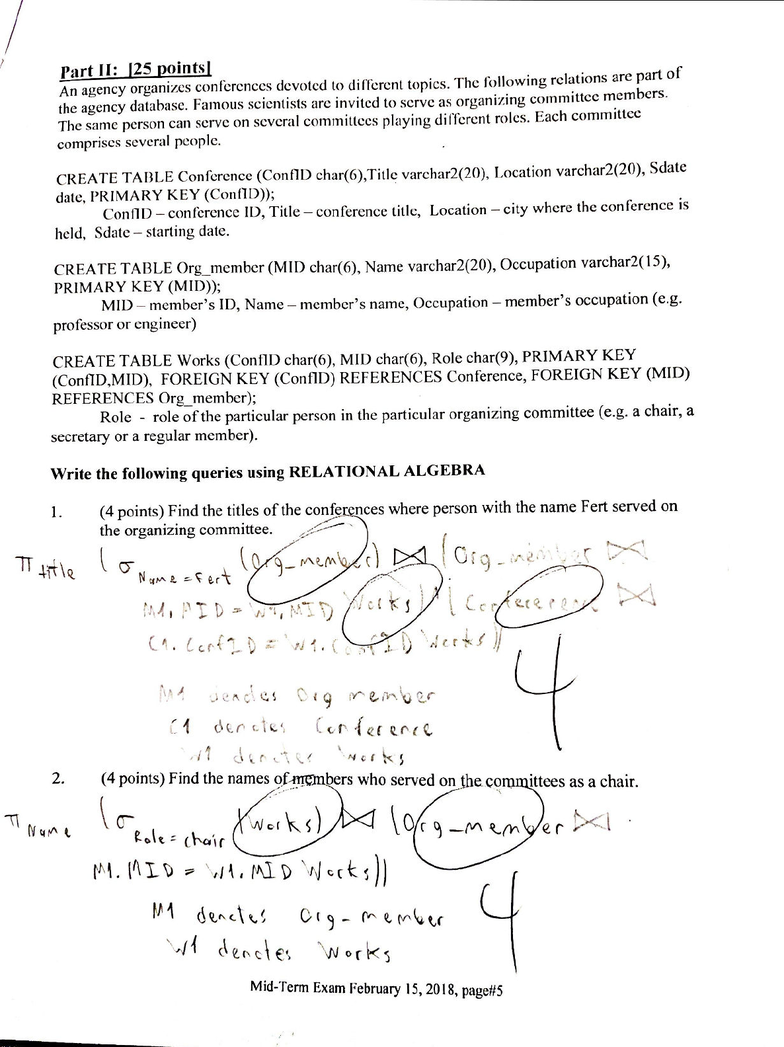 Part II: [25 points]
An agency organizes conferences devoted to different topics. The following relations are part of
the agency database. Famous scientists are invited to serve as organizing committee members.
The same person can serve on several committees playing different roles. Each committee
comprises several people.
CREATE TABLE Conference (ConfID char(6),Title varchar2(20), Location varchar2(20), Sdate
date, PRIMARY KEY (ConfID));
ConfID – conference ID, Title – conference title, Location – city where the conference is
held, Sdate – starting date.
CREATE TABLE Org_member (MID char(6), Name varchar2(20), Occupation varchar2(15),
PRIMARY KEY (MID));
MID – member's ID, Name – member's name, Occupation – member's occupation (e.g.
professor or engineer)
CREATE TABLE Works (ConfID char(6), MID char(6), Role char(9), PRIMARY KEY
(ConfID,MID), FOREIGN KEY (ConfID) REFERENCES Conference, FOREIGN KEY (MID)
REFERENCES Org_member);
Role - role of the particular person in the particular organizing committee (e.g. a chair, a
secretary or a regular member).
Write the following queries using RELATIONAL ALGEBRA
1. (4 points) Find the titles of the conferences where person with the name Fert served on
the organizing committee.
π title (σ Name = Fert (Org_member) ⋈ (Org_member ⋈
M1.MID = W1.MID Works) (Conference ⋈
C1.ConfID = W1.ConfID Works))
4
M1 denotes Org member
C1 denotes Conference
W1 denotes Works
2. (4 points) Find the names of members who served on the committees as a chair.
π Name (σ Role = chair (Works) ⋈ (Org_member ⋈
M1.MID = W1.MID Works))
M1 denotes Org-member
W1 denotes Works
4
Mid-Term Exam February 15, 2018, page#5